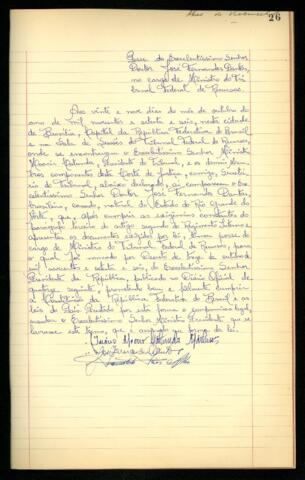 26
Posse do Excelentíssimo Senhor
Doutor José Fernandes Dantas,
no cargo de Ministro do Tri-
bunal Federal de Recursos.
Aos vinte e nove dias do mês de outubro do
ano de mil novecentos e setenta e seis, nesta cidade
de Brasília, Capital da República Federativa do Brasil
e na Sala de Sessões do Tribunal Federal de Recursos,
onde se encontravam o Excelentíssimo Senhor Ministro
Moacir Catunda, Presidente do Tribunal, e os demais Mem-
bros componentes desta Corte de Justiça, comigo, Secretá-
rio do Tribunal, abaixo declarado, aí compareceu o Ex-
celentíssimo Senhor Doutor José Fernandes Dantas,
brasileiro, casado, natural do Estado do Rio Grande do
Norte, que, após cumprir as exigências constantes do
parágrafo terceiro do artigo segundo do Regimento Interno e
apresentar os documentos exigidos por lei, tomou posse do
cargo de Ministro do Tribunal Federal de Recursos, para
o qual foi nomeado por Decreto de treze de outubro de
mil novecentos e setenta e seis, do Excelentíssimo Senhor
Presidente da República, publicado no Diário Oficial de
quatorze seguinte, prometendo bem e fielmente cumprir
a Constituição da República Federativa do Brasil e as
leis do País. Prestado por esta forma o compromisso legal,
mandou o Excelentíssimo Senhor Ministro Presidente que se
lavrasse este termo, que é assinado na forma da lei.